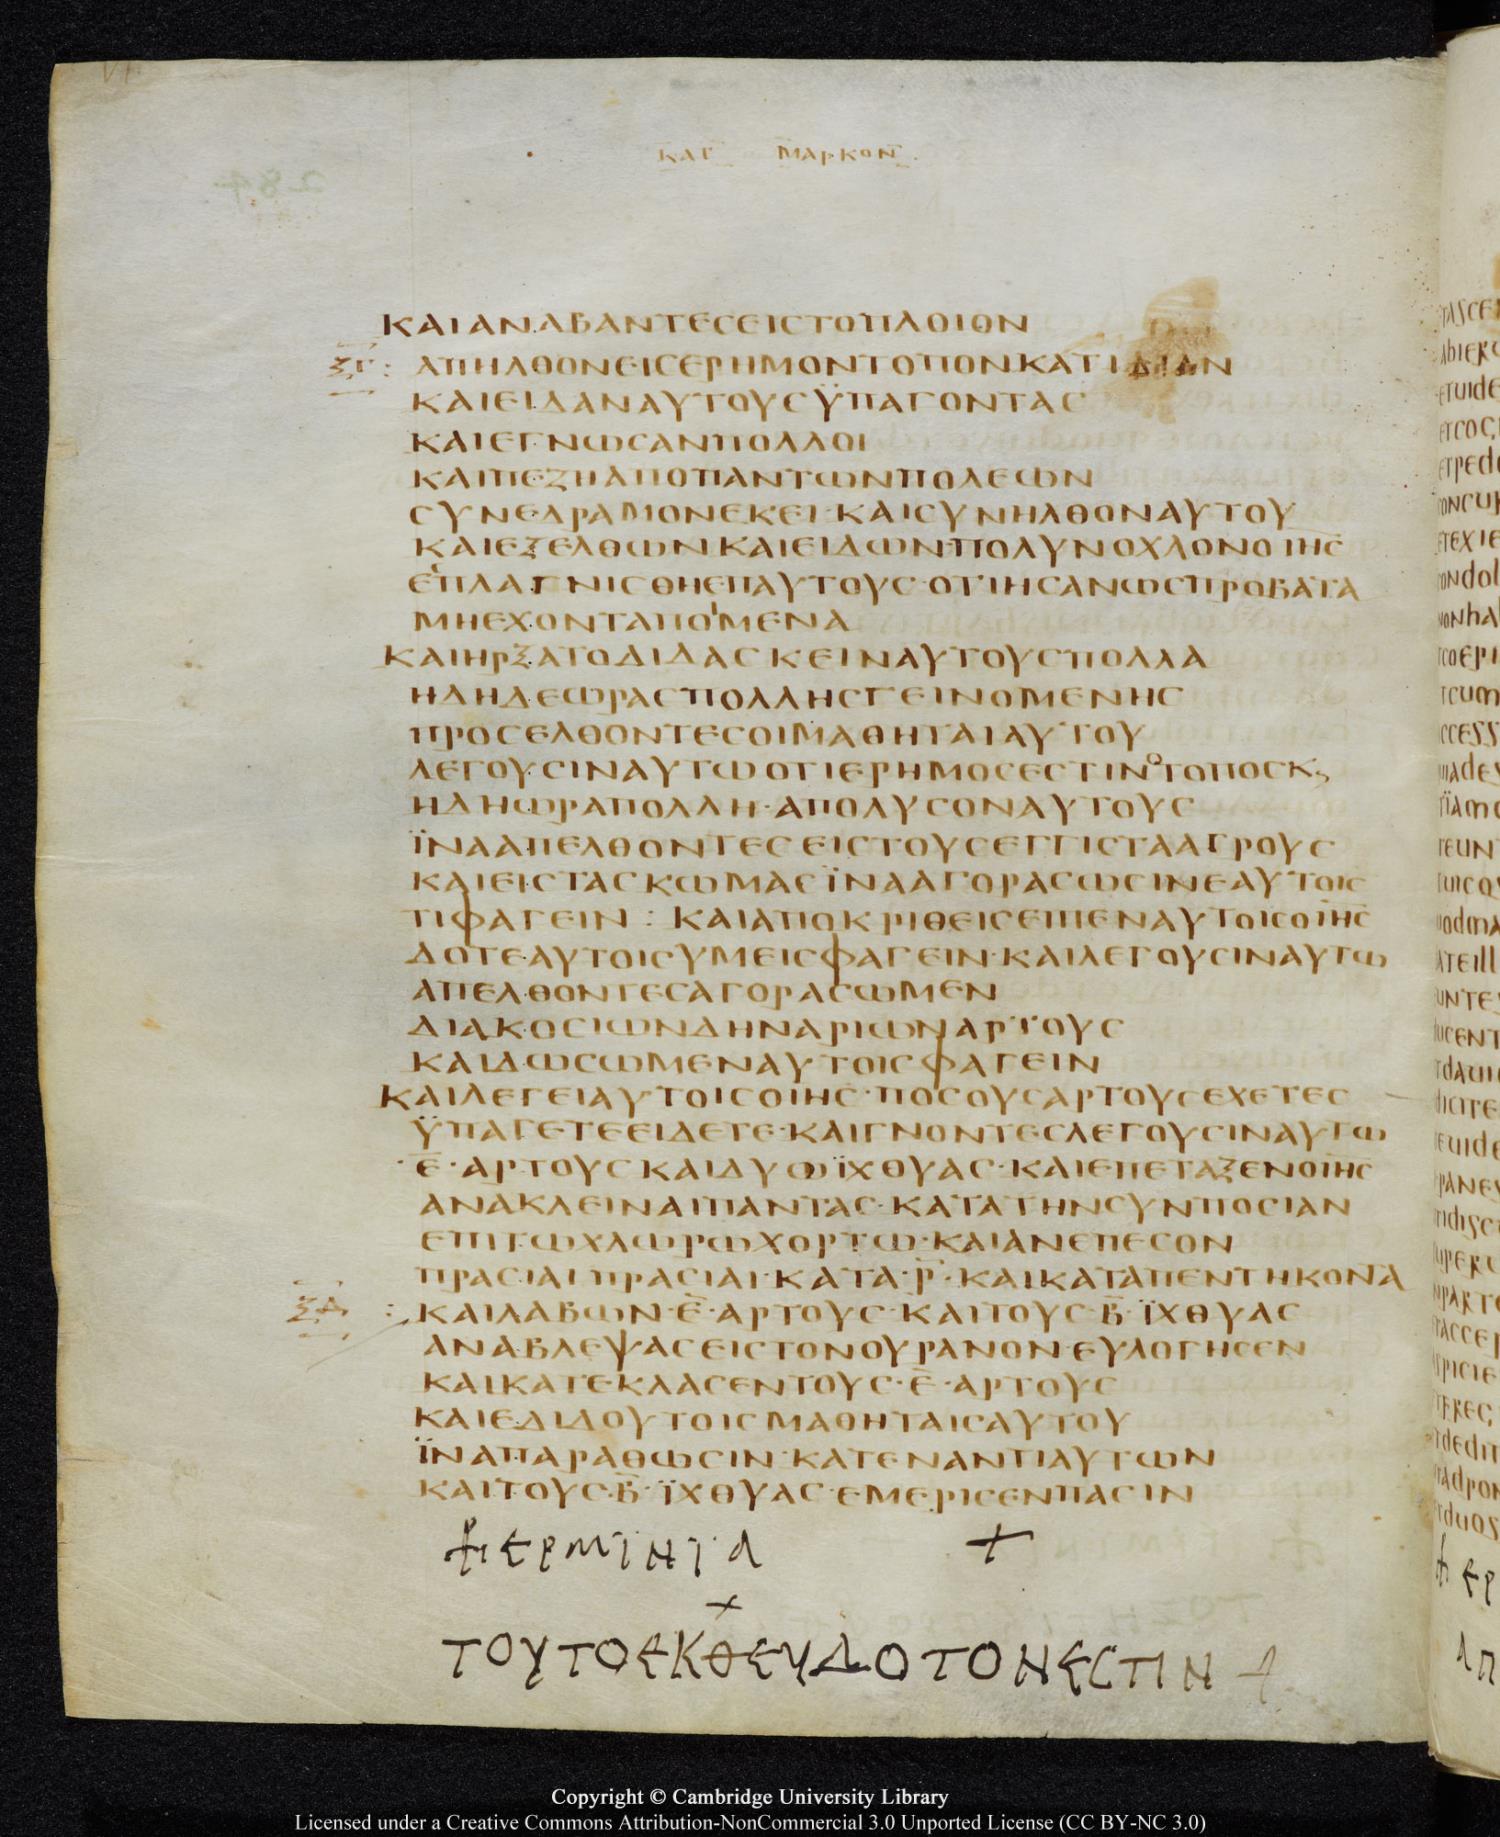 ΚΑΤ ΜΑΡΚΟΝ
ΚΑΙΑΝΑΒΑΝΤΕСΕΙСΤΟΠΛΟΙΟΝ
ΞΓ : ΑΠΗΛΘΟΝΕΙСΕΡΗΜΟΝΤΟΠΟΝΚΑΤΙΔΙΑΝ
ΚΑΙΕΙΔΑΝΑΥΤΟΥСΫΠΑΓΟΝΤΑС
ΚΑΙΕΓΝΩСΑΝΠΟΛΛΟΙ
ΚΑΙΠΕΖΗΑΠΟΠΑΝΤΩΝΠΟΛΕΩΝ
СΥΝΕΔΡΑΜΟΝΕΚΕΙ·ΚΑΙСΥΝΗΛΘΟΝΑΥΤΟΥ
ΚΑΙΕΞΕΛΘΩΝΚΑΙΕΙΔΩΝ·ΠΟΛΥΝΟΧΛΟΝΟΙΗС
ΕΠΛΑΓΝΙСΘΗΕΠΑΥΤΟΥС·ΟΤΙΗСΑΝΩСΠΡΟΒΑΤΑ
ΜΗΕΧΟΝΤΑΠΟΙΜΕΝΑ
ΚΑΙΗΡΞΑΤΟΔΙΔΑСΚΕΙΝΑΥΤΟΥСΠΟΛΛΑ
ΗΔΗΔΕΩΡΑСΠΟΛΛΗСΓΕΙΝΟΜΕΝΗС
ΠΡΟСΕΛΘΟΝΤΕСΟΙΜΑΘΗΤΑΙΑΥΤΟΥ
ΛΕΓΟΥСΙΝΑΥΤΩΟΤΙΕΡΗΜΟСΕСΤΙΝΟΤΟΠΟСΚϛ
ΗΔΗΩΡΑΠΟΛΛΗ·ΑΠΟΛΥСΟΝΑΥΤΟΥС
ΪΝΑΑΠΕΛΘΟΝΤΕСΕΙСΤΟΥСΕΓΓΙСΤΑΑΓΡΟΥС
ΚΑΙΕΙСΤΑСΚΩΜΑСΪΝΑΑΓΟΡΑСΩСΙΝΕΑΥΤΟΙС
ΤΙΦΑΓΕΙΝ : ΚΑΙΑΠΟΚΡΙΘΕΙСΕΙΠΕΝΑΥΤΟΙСΟΙΗС
ΔΟΤΕΑΥΤΟΙСΥΜΕΙСΦΑΓΕΙΝ·ΚΑΙΛΕΓΟΥСΙΝΑΥΤΩ
ΑΠΕΛΘΟΝΤΕСΑΓΟΡΑСΩΜΕΝ
ΔΙΑΚΟСΙΩΝΔΗΝΑΡΙΩΝΑΡΤΟΥС
ΚΑΙΔΩСΩΜΕΝΑΥΤΟΙСΦΑΓΕΙΝ
ΚΑΙΛΕΓΕΙΑΥΤΟΙСΟΙΗС·ΠΟСΟΥСΑΡΤΟΥСΕΧΕΤΕС
ΫΠΑΓΕΤΕΕΙΔΕΤΕ·ΚΑΙΓΝΟΝΤΕСΛΕΓΟΥСΙΝΑΥΤΩ
·Ε̅·ΑΡΤΟΥСΚΑΙΔΥΩΪΧΘΥΑС·ΚΑΙΕΠΕΤΑΞΕΝΟΙΗС
ΑΝΑΚΛΕΙΝΑΙΠΑΝΤΑС·ΚΑΤΑΤΗΝСΥΝΠΟСΙΑΝ
ΕΠΙΤΩΧΛΩΡΩΧΟΡΤΩ·ΚΑΙΑΝΕΠΕСΟΝ
ΠΡΑСΙΑΙΠΡΑСΙΑΙ·ΚΑΤΑ·Ρ̅·ΚΑΙΚΑΤΑΠΕΝΤΗΚΟΝΤΑ
ΞΔ : ΚΑΙΛΑΒΩΝ·Ε̅·ΑΡΤΟΥС·ΚΑΙΤΟΥС·Β̅·ΪΧΘΥΑС
ΑΝΑΒΛΕΨΑСΕΙСΤΟΝΟΥΡΑΝΟΝ·ΕΥΛΟΓΗСΕΝ
ΚΑΙΚΑΤΕΚΛΑСΕΝΤΟΥС·Ε̅·ΑΡΤΟΥС
ΚΑΙΕΔΙΔΟΥΤΟΙСΜΑΘΗΤΑΙСΑΥΤΟΥ
ΪΝΑΠΑΡΑΘΩСΙΝ·ΚΑΤΕΝΑΝΤΙΑΥΤΩΝ
ΚΑΙΤΟΥС·Β̅·ΪΧΘΥΑС·ΕΜΕΡΙСΕΝΠΑСΙΝ
ΕΡΜΙΝΙΑ +
+
ΤΟΥΤΟΕΚΘΕΥΔΟΤΟΝΕСΤΙΝ +
Copyright © Cambridge University Library
Licensed under a Creative Commons Attribution-NonCommercial 3.0 Unported License (CC BY-NC 3.0)